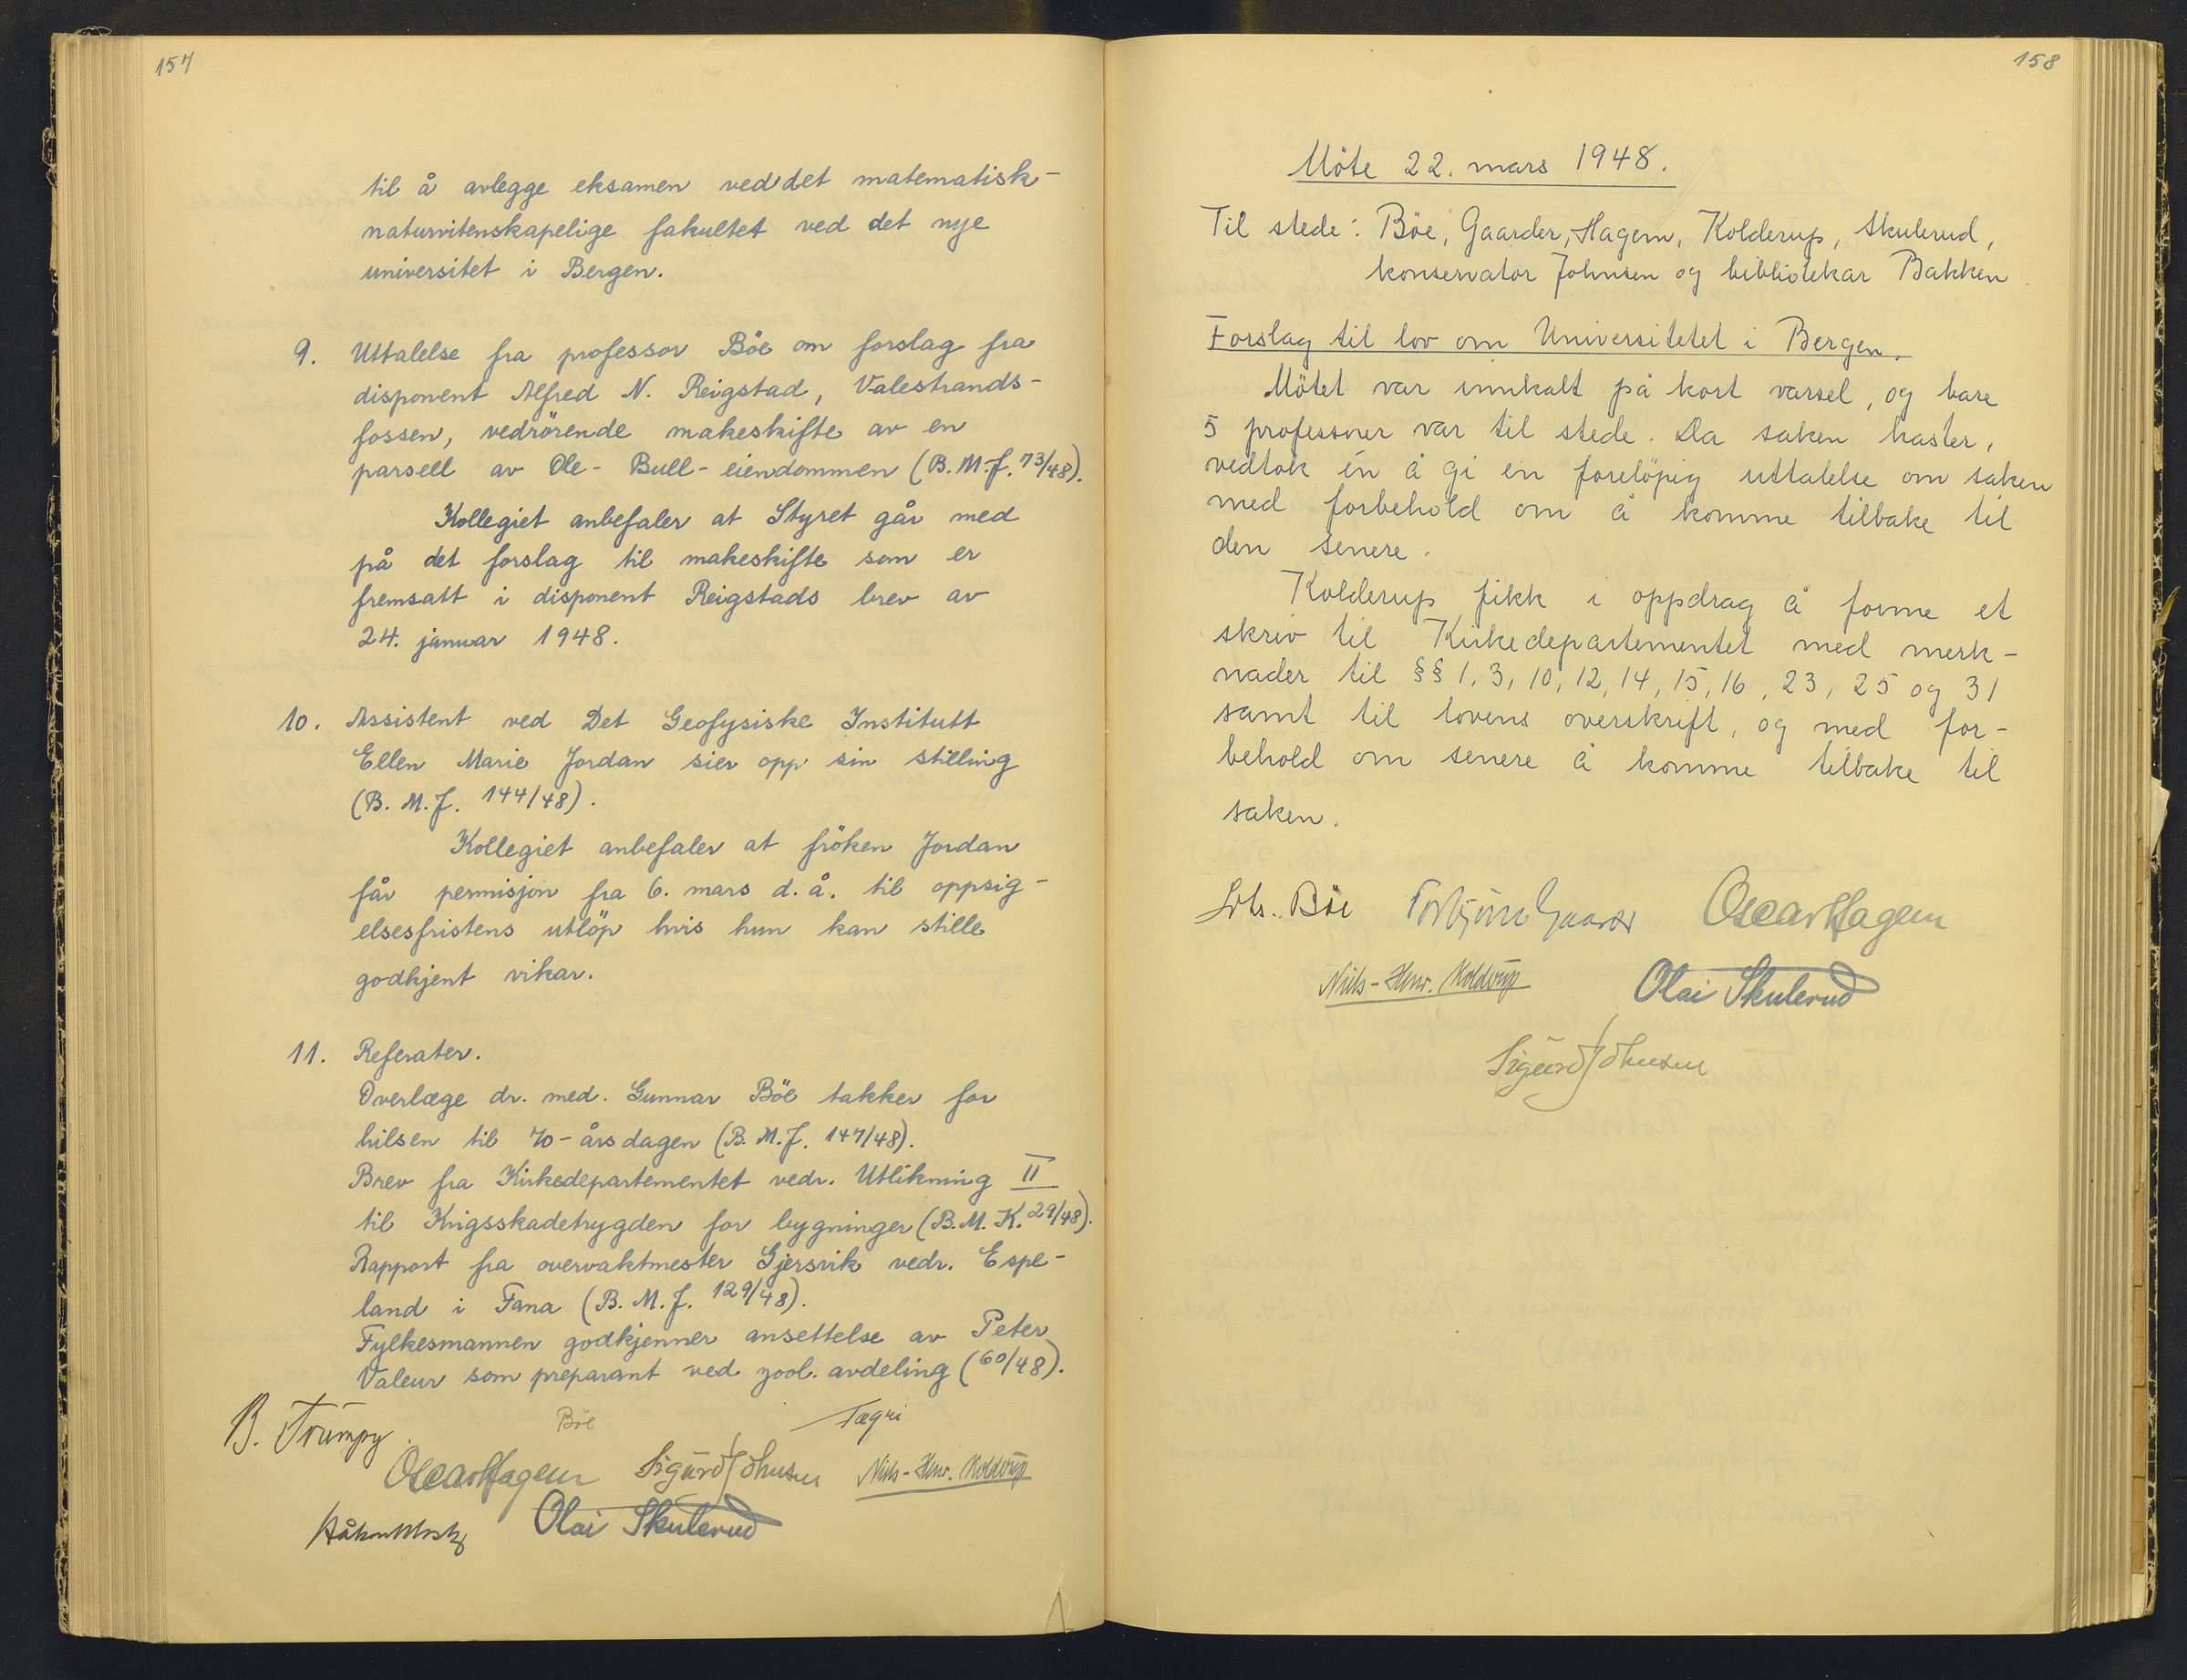 157
til å avlegge eksamen ved det matematisk-
naturvitenskapelige fakultet ved det nye
universitet i Bergen.
9. Uttalelse fra professor Böe om forslag fra
disponent Alfred N. Reigstad, Valestrands-
fossen, vedrörende makeskifte av en
parsell av Ole-Bull-eiendommen (B.M.J. 73/48).
Kollegiet anbefaler at Styret går med
på det forslag til makeskifte som er
fremsatt i disponent Reigstads brev av
24. januar 1948.
10. Assistent ved Det Geofysiske Institutt
Ellen Marie Jordan sier opp sin stilling
(B.M.J. 144/48).
Kollegiet anbefaler at fröken Jordan
får permisjon fra 6. mars d.å. til oppsig-
elsesfristens utlöp hvis hun kan stille
godkjent vikar.
11. Referater.
Overlæge dr. med. Gunnar Böe takker for
hilsen til 70-årsdagen (B.M.J. 147/48).
Brev fra Kirkedepartementet vedr. Utlikning II
til Krigsskadetrygden for bygninger (B.M.K. 29/48).
Rapport fra overvaktmester Gjersvik vedr. Espe-
land i Fana (B.M.J. 129/48).
Fylkesmannen godkjenner ansettelse av Peter
Valeur som preparant ved zool. avdeling (60/48).
B. Trumpy Böe Fægri
Oscar Hagem Sigurd Johnsen Niels-Henr. Kolderup
Olai Skulerud
158
Möte 22. mars 1948.
Til stede: Böe, Gaarder, Hagem, Kolderup, Skulerud,
konservator Johnsen og bibliotekar Bakken
Forslag til lov om Universitetet i Bergen.
Mötet var innkalt på kort varsel, og bare
5 professorer var til stede. Da saken haster,
vedtok én å gi en forelöpig uttalelse om saken
med forbehold om å komme tilbake til
den senere.
Kolderup fikk i oppdrag å forme et
skriv til Kirkedepartementet med merk-
nader til §§ 1, 3, 10, 12, 14, 15, 16, 23, 25 og 31
samt til lovens overskrift, og med for-
behold om senere å komme tilbake til
saken.
Johs. Böe Torbjörn Gaarder Oscar Hagem
Niels-Henr. Kolderup Olai Skulerud
Sigurd Johnsen